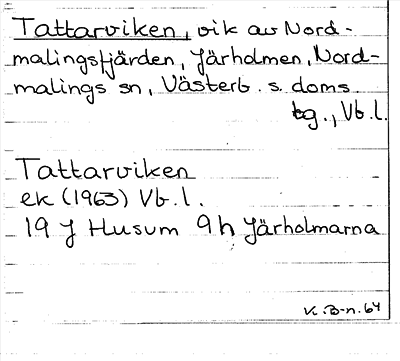 Tattarviken, vik av Nord-
malingsfjärden, Järholmen, Nord-
malings sn, Västerb. s. doms.
tg., Vb. l.
Tattarviken
ek (1963) Vb. l.
19 J Husum 9 h Järholmarna
K. B-n. 64